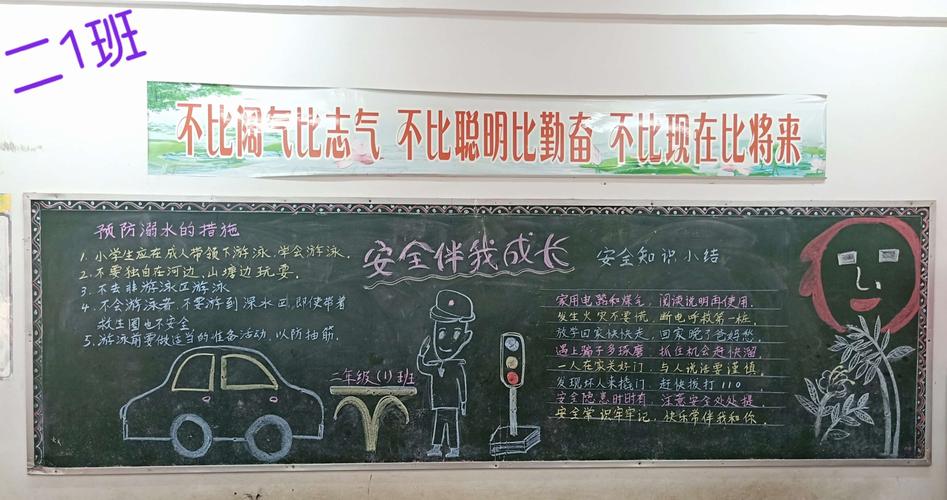 二1班
不比阔气比志气 不比聪明比勤奋 不比现在比将来
预防溺水的措施
1. 小学生应在成人带领下游泳，学会游泳。
2. 不要独自在河边、山塘边玩耍。
3. 不去非游泳区游泳
4. 不会游泳者，不要游到深水区，即使带着
救生圈也不安全
5. 游泳前要做适当的准备活动，以防抽筋。
安全伴我成长
二年级(1)班
安全知识小结
家用电器和煤气，阅读说明再使用。
发生火灾不要慌，断电呼救第一桩。
放学回家快快走，回家晚了爸妈愁。
遇上骗子多琢磨，抓住机会赶快溜。
一人在家关好门，与人说话要谨慎。
发现坏人来撬门，赶快拨打110。
安全隐患时时有，注意安全处处提。
安全常识牢牢记，快乐常伴我和你。